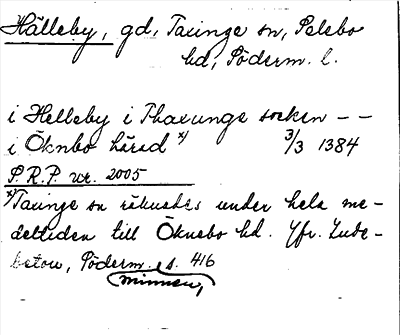 Hälleby, gd, Taxinge sn, Selebo
hd, Söderm. l.
i Helleby i Thaxunge socken – –
i Öknbo härad x) 3/3 1384
S.R.P. nr. 2005
x) Taxinge sn räknades under hela me-
deltiden till Öknebo hd. Jfr. Lude-
betou, Söderm. s. 416
minnen,